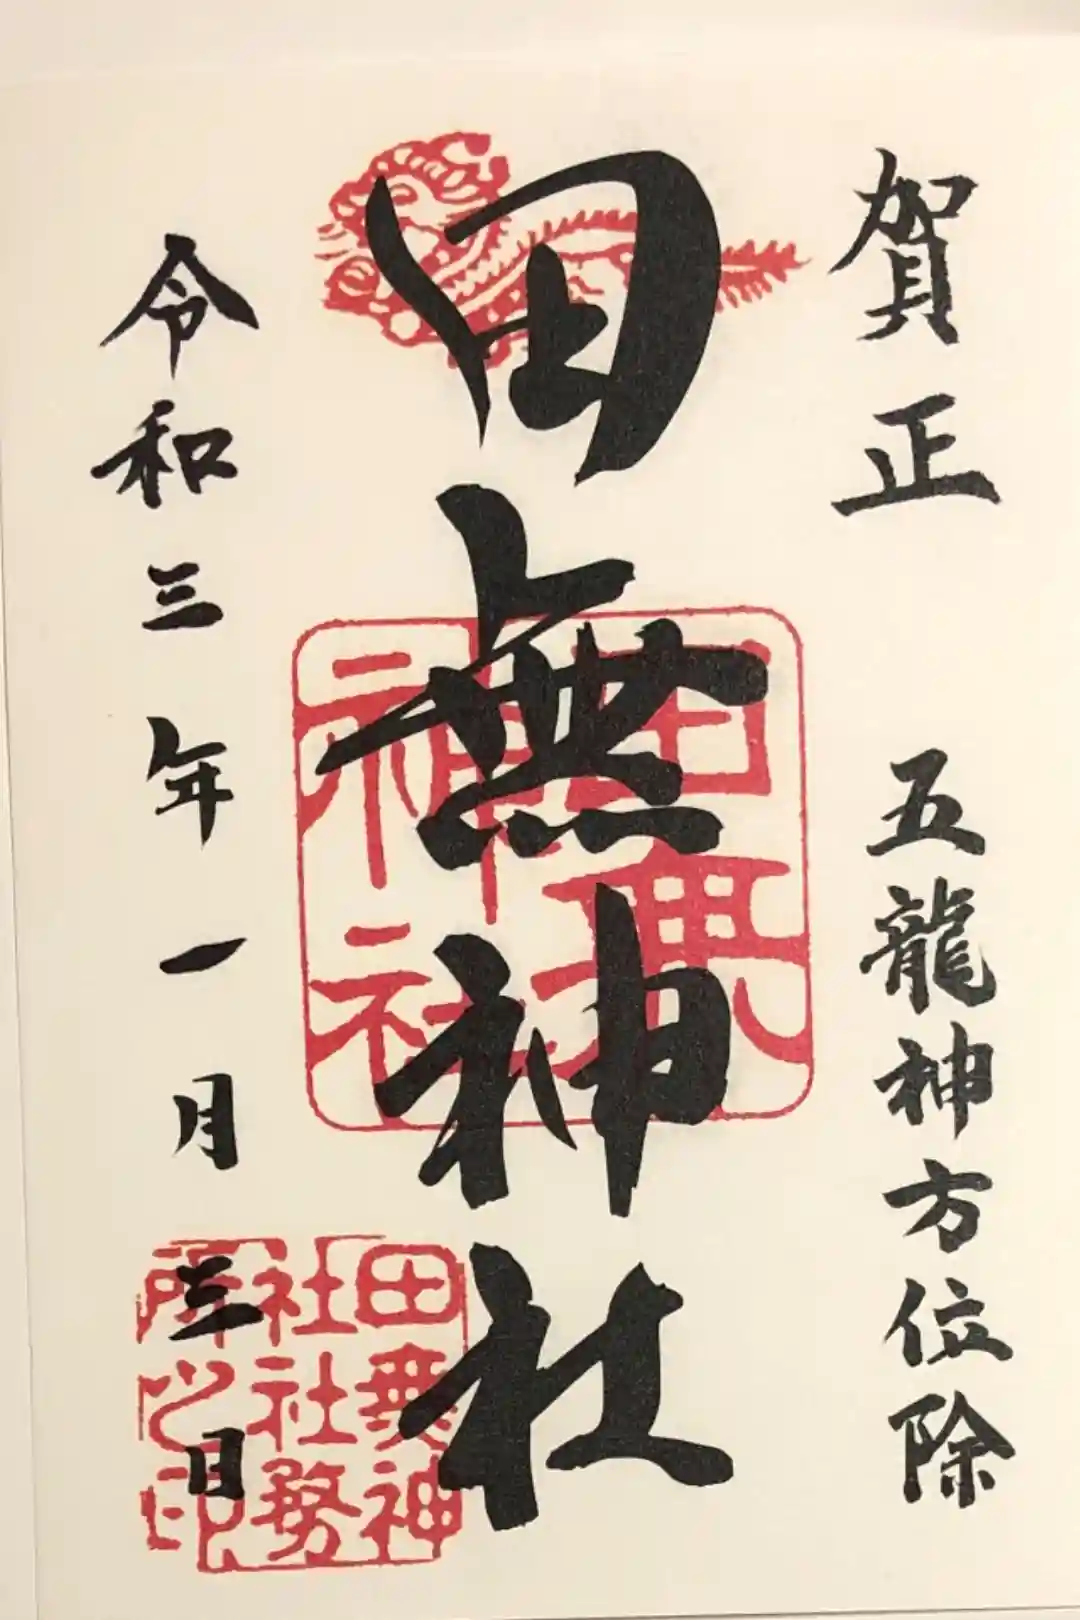 賀正 五龍神方位除
田無神社
令和三年一月三日
田無神社
田無神社社務所之印